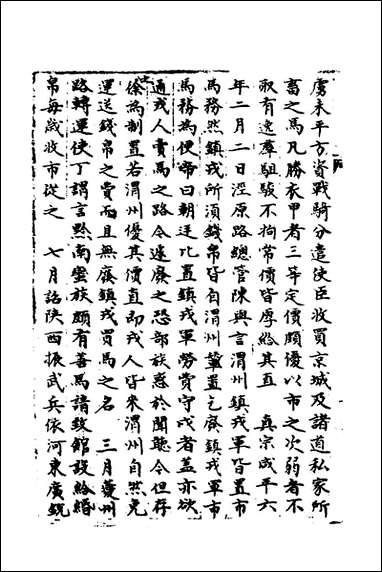 虜未平方資戰騎分遣使臣收買京城及諸道私家所
畜之馬凡勝衣甲者三等定價頗優以市之次弱者不
取有逸羣駔駿不拘常價皆厚給其直　真宗咸平六
年二月二日涇原路總管陳興言渭州鎮戎軍皆置市
馬務然鎮戎所須錢帛皆自渭州輦置乞廢鎮戎軍市
馬務為便帝曰朝廷比置鎮戎軍勞費守戍者蓋亦欲
通戎人賣馬之路今遽廢之恐部族惑於聞聽令但存
條為制置若渭州優其價直即戎人皆來渭州自然免
運送錢帛之費而且無廢鎮戎買馬之名　三月夔州
路轉運使丁謂言黔南蠻族頗有善馬請致館設給緡
帛每歲收市從之　七月詔陝西振武兵依河東廣銳